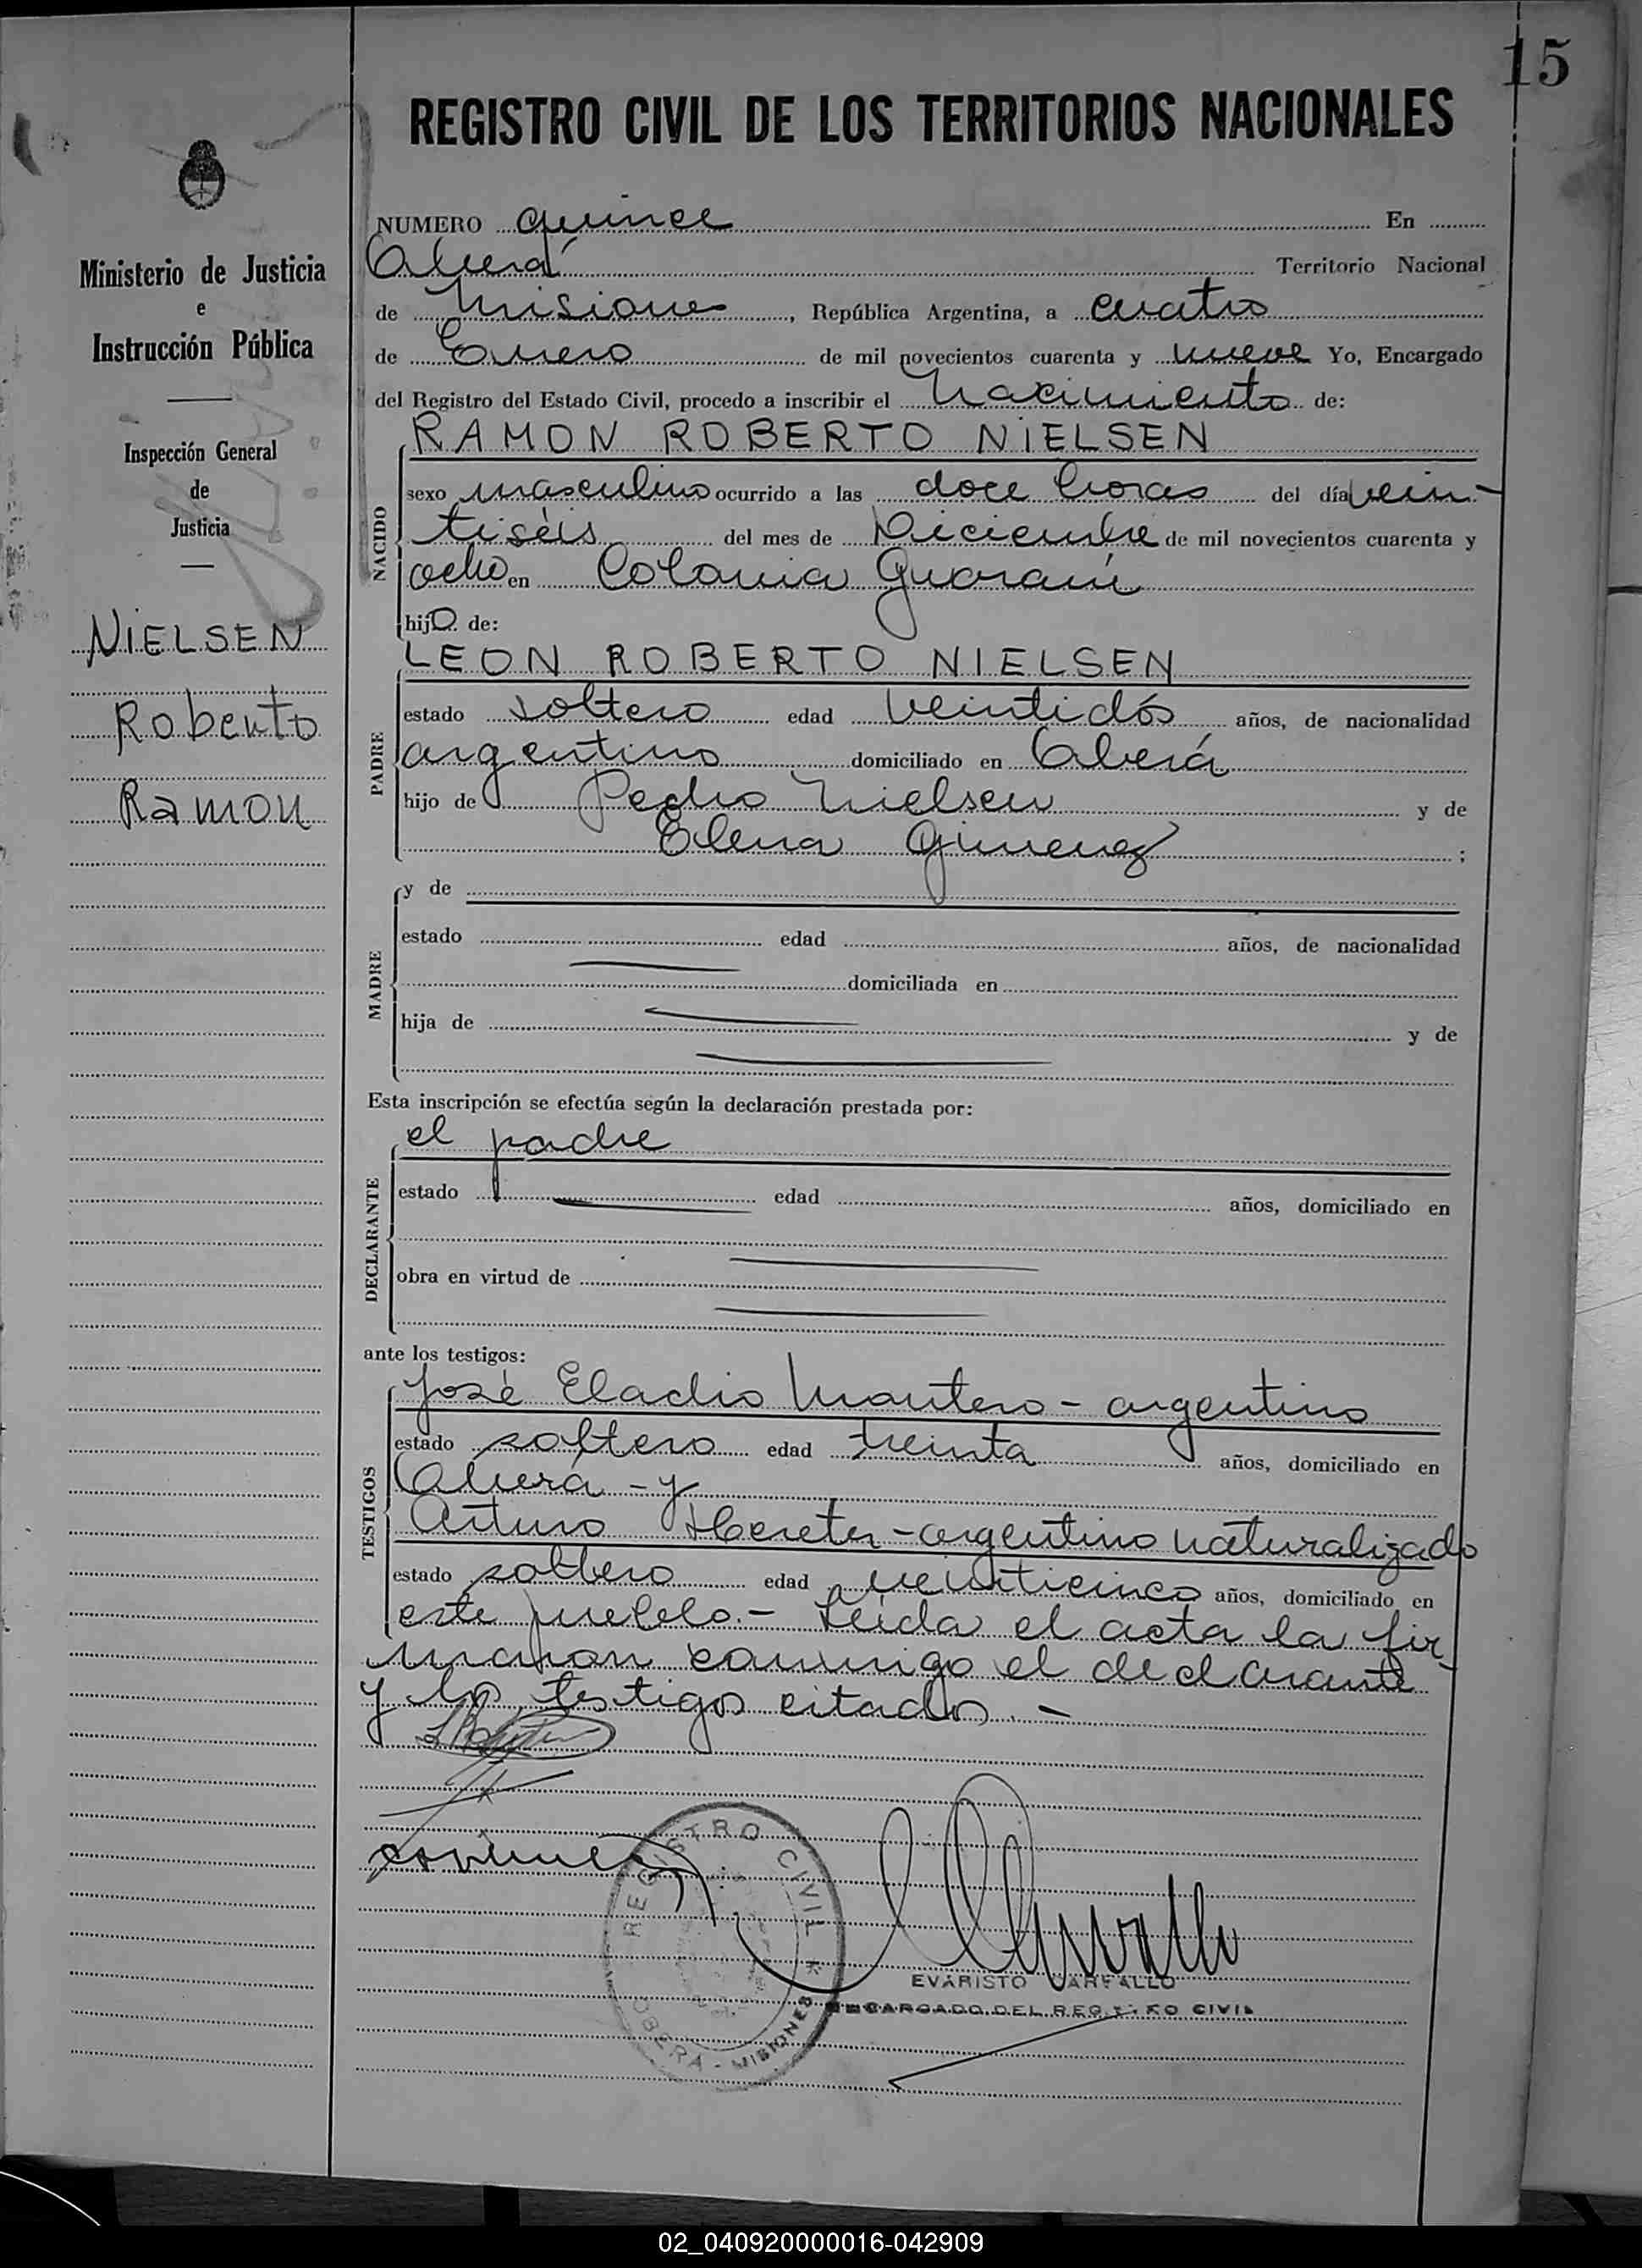 15
REGISTRO CIVIL DE LOS TERRITORIOS NACIONALES
Ministerio de Justicia
e
Instrucción Pública
Inspección General
de
Justicia
NIELSEN
Roberto
Ramon
NUMERO quince En
Oberá Territorio Nacional
de Misiones, República Argentina, a cuatro
de Enero de mil novecientos cuarenta y nueve Yo, Encargado
del Registro del Estado Civil, procedo a inscribir el Nacimiento de:
NACIDO
RAMON ROBERTO NIELSEN
sexo masculino ocurrido a las doce horas del día vein-
tiséis del mes de Diciembre de mil novecientos cuarenta y
ocho en Colonia Guaraní
hijo de:
PADRE
LEON ROBERTO NIELSEN
estado soltero edad veintidós años, de nacionalidad
argentino domiciliado en Oberá
hijo de Pedro Nielsen y de
Elena Gimenez ;
MADRE
y de
estado edad años, de nacionalidad
domiciliada en
hija de y de
Esta inscripción se efectúa según la declaración prestada por:
DECLARANTE
el padre
estado edad años, domiciliado en
obra en virtud de
ante los testigos:
TESTIGOS
José Eladio Montero - argentino
estado soltero edad treinta años, domiciliado en
Oberá - y
Arturo - argentino naturalizado
estado soltero edad veinticinco años, domiciliado en
este pueblo.- Leída el acta la fir-
maron conmigo el declarante
y los testigos citados. -
REGISTRO CIVIL *
OBERA - MISIONES
EVARISTO CARFALLO
ENCARGADO DEL REGISTRO CIVIL
02_040920000016-042909